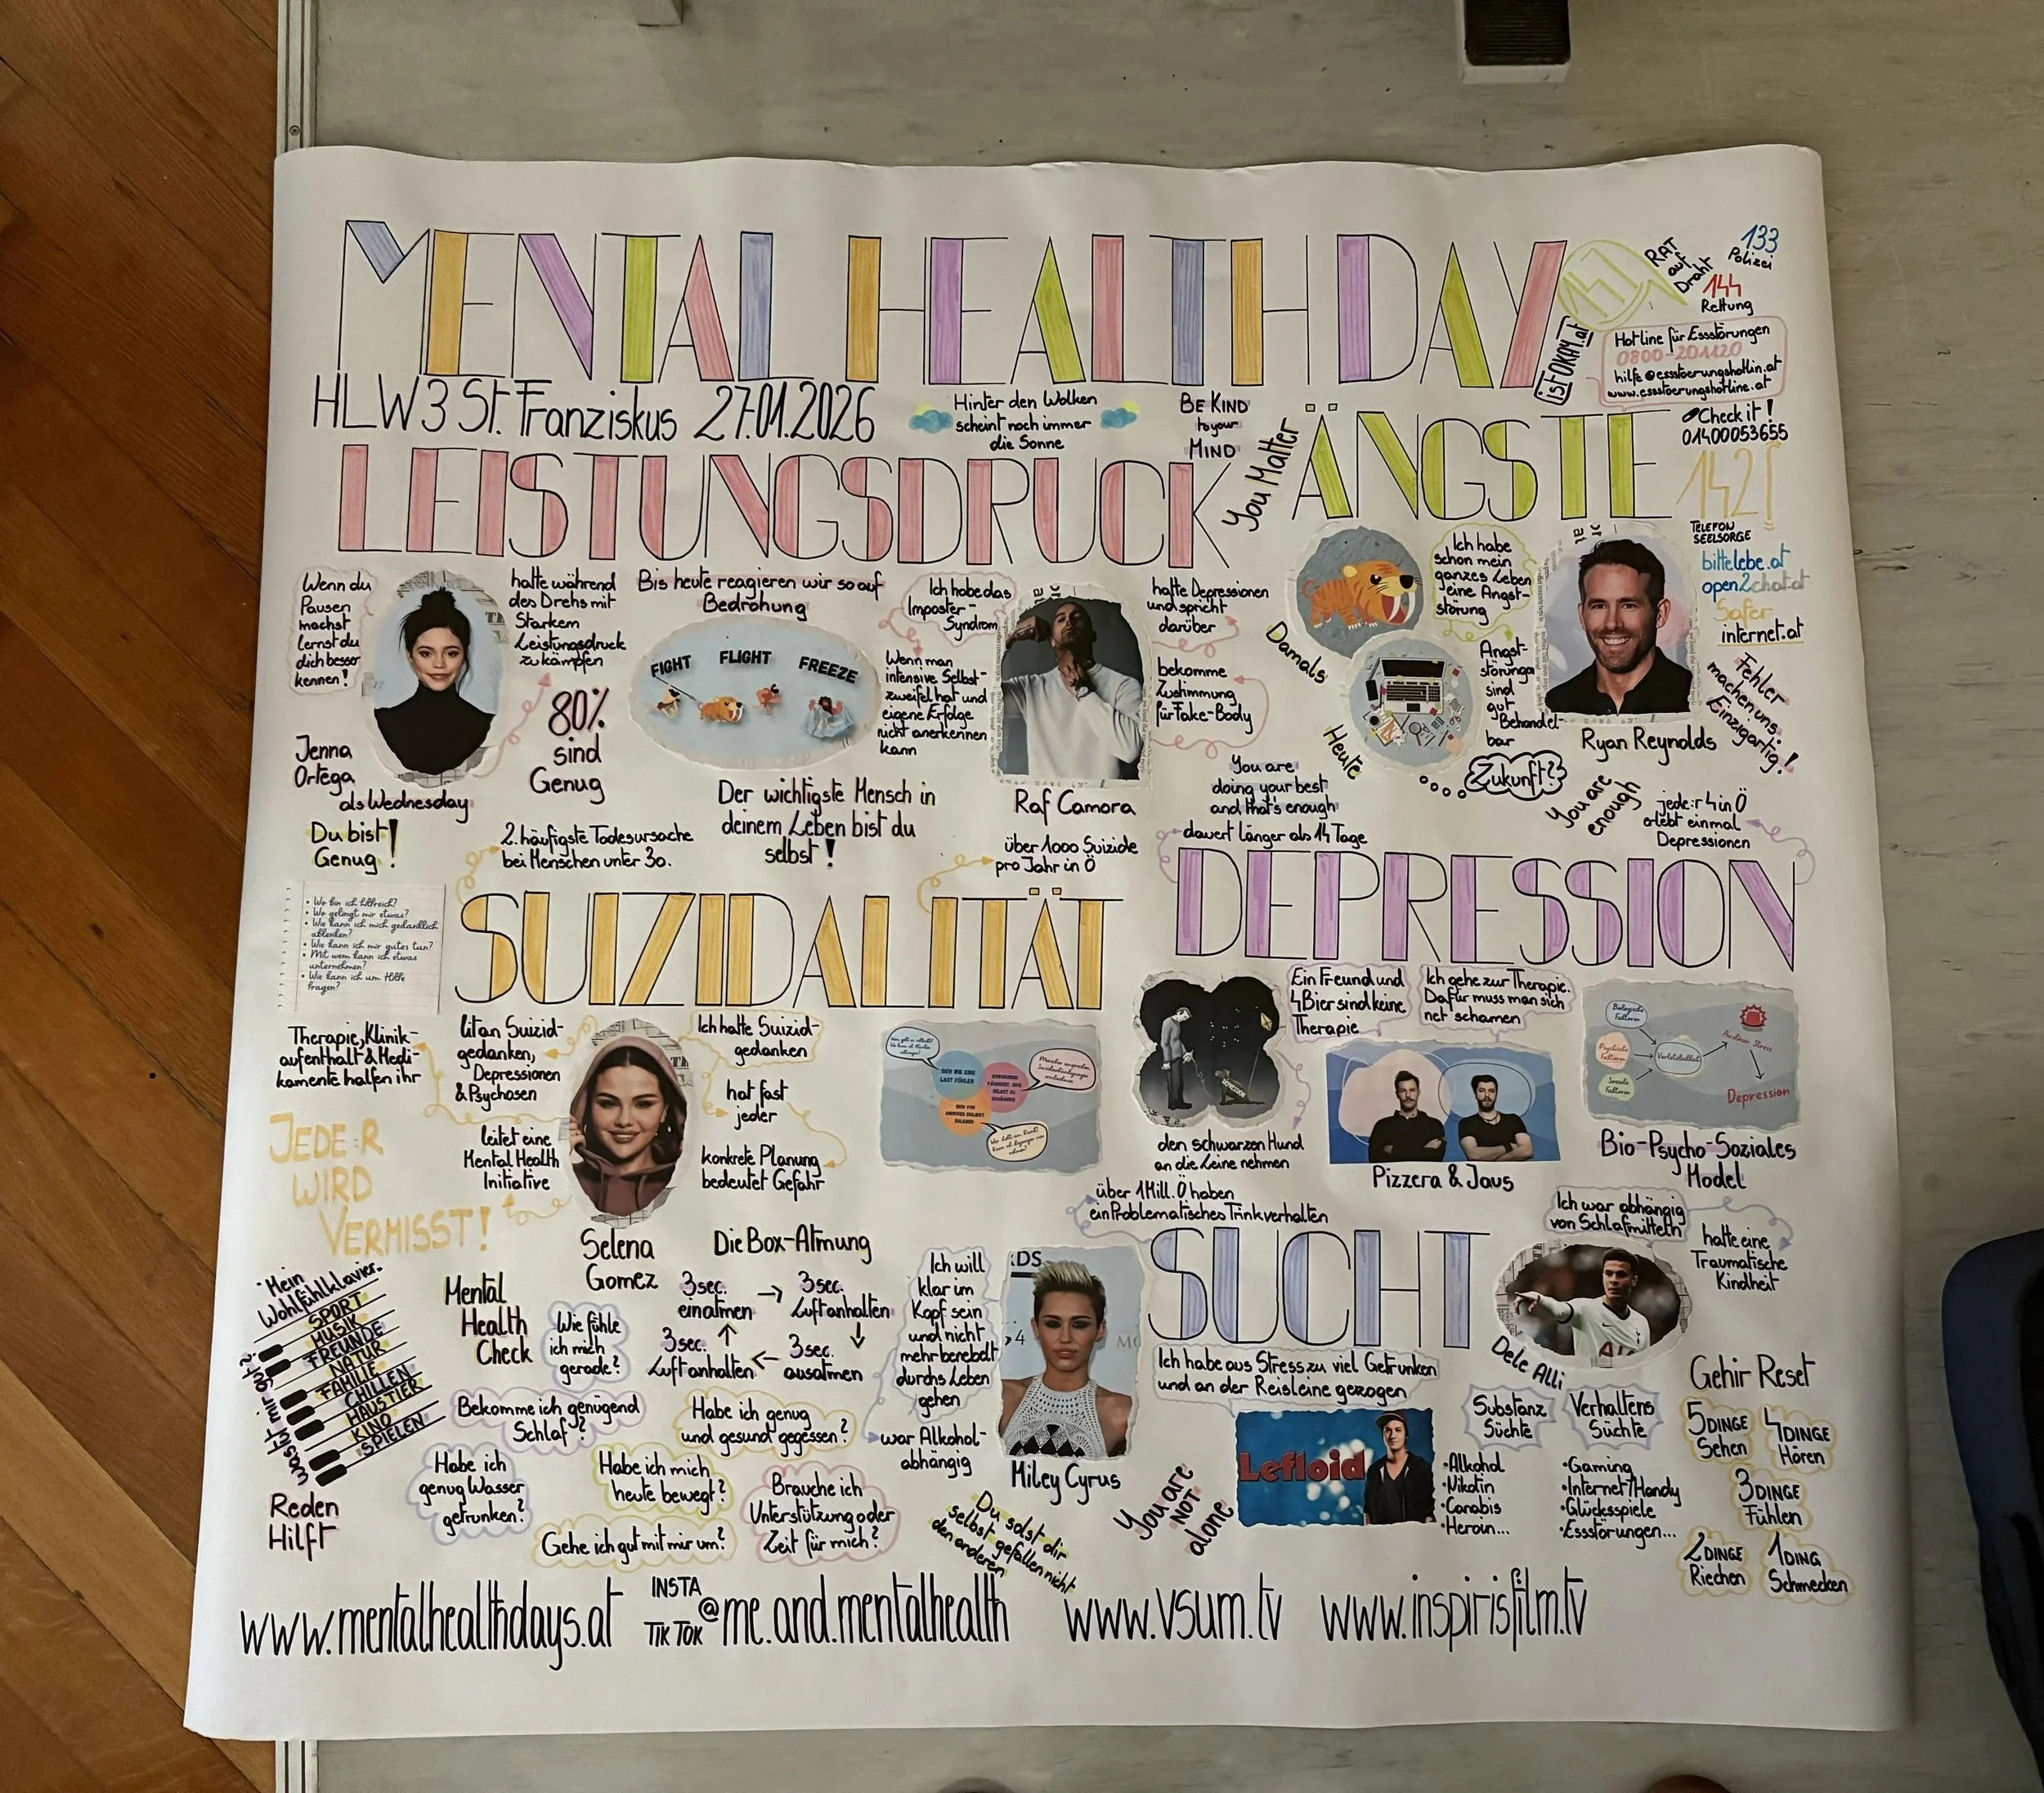 MENTAL HEALTH DAY
147
RAT
auf
Draht
133
Polizei
144
Rettung
istOKAY.at
Hotline für Essstörungen
0800-201120
hilfe@essstoerungshotlin.at
www.essstoerungshotline.at
Check it!
01400053655
142!
TELEFON
SEELSORGE
bittelebe.at
open2chat.at
Safer
internet.at
Fehler
machen uns
Einzigartig!
HLW3 St. Franziskus 27.01.2026
Hinter den Wolken
scheint noch immer
die Sonne
BE KIND
to your
MIND
You Matter
LEISTUNGSDRUCK
Wenn du
Pausen
machst
lernst du
dich besser
kennen!
Jenna
Ortega
als Wednesday
hatte während
des Drehs mit
Starkem
Leistungsdruck
zu kämpfen
80%
sind
Genug
Du bist
Genug!
Bis heute reagieren wir so auf
Bedrohung
FIGHT
FLIGHT
FREEZE
Der wichtigste Mensch in
deinem Leben bist du
selbst!
Ich habe das
Imposter-
Syndrom
Wenn man
intensive Selbst-
zweifel hat und
eigene Erfolge
nicht anerkennen
kann
Raf Camora
hatte Depressionen
und spricht
darüber
bekomme
Zustimmung
für Fake-Body
ÄNGSTE
Damals
Heute
Ich habe
schon mein
ganzes Leben
eine Angst-
störung
Angst-
störungen
sind
gut
Behandel-
bar
Zukunft?
Ryan Reynolds
You are
doing your best
and that's enough
You are
enough
SUIZIDALITÄT
2. häufigste Todesursache
bei Menschen unter 30.
über 1000 Suizide
pro Jahr in Ö
• Wo bin ich hilfreich?
• Wo gelingt mir etwas?
• Wie kann ich mich gedanklich
ablenken?
• Wie kann ich mir gutes tun?
• Mit wem kann ich etwas
unternehmen?
• Wie kann ich um Hilfe
fragen?
Therapie, Klinik-
aufenthalt & Medi-
kamente halfen ihr
litan Suizid-
gedanken,
Depressionen
& Psychosen
leitet eine
Mental Health
Initiative
Selena
Gomez
Ich hatte Suizid-
gedanken
hat fast
jeder
konkrete Planung
bedeutet Gefahr
SICH WIE EINE
LAST FÜHLEN
JEDE:R
WIRD
VERMISST!
DEPRESSION
dauert länger als 14 Tage
jede:r 4 in Ö
erlebt einmal
Depressionen
den schwarzen Hund
an die Leine nehmen
Ein Freund und
4 Bier sind keine
Therapie
Ich gehe zur Therapie.
Dafür muss man sich
net schämen
Pizzera & Jaus
Biologische
Faktoren
Psychische
Faktoren
Soziale
Faktoren
Verletzlichkeit
Auslöser Stress
Depression
Bio-Psycho-Soziales
Model
"Mein
Wohlfühlklavier"
SPORT
MUSIK
FREUNDE
NATUR
FAMILIE
CHILLEN
HAUSTIER
KINO
SPIELEN
was tut mir gut?
Reden
Hilft
Die Box-Atmung
3sec.
einatmen
3sec.
Luftanhalten
3sec.
ausatmen
3sec.
Luftanhalten
Mental
Health
Check
Wie fühle
ich mich
gerade?
Bekomme ich genügend
Schlaf?
Habe ich genug
und gesund gegessen?
Habe ich
genug Wasser
getrunken?
Habe ich mich
heute bewegt?
Brauche ich
Unterstützung oder
Zeit für mich?
Gehe ich gut mit mir um?
SUCHT
über 1 Mill. Ö haben
ein Problematisches Trinkverhalten
Ich will
klar im
Kopf sein
und nicht
mehr benebelt
durchs Leben
gehen
war Alkohol-
abhängig
Miley Cyrus
Ich habe aus Stress zu viel Getrunken
und an der Reisleine gezogen
Lefloid
Ich war abhängig
von Schlafmitteln
hatte eine
Traumatische
Kindheit
Dele Alli
Substanz
Süchte
•Alkohol
•Nikotin
•Canabis
•Heroin...
Verhaltens
Süchte
•Gaming
•Internet/Handy
•Glücksspiele
•Essstörungen...
Du solst dir
selbst gefallen nicht
den anderen
You are
NOT
alone
Gehir Reset
5 DINGE
Sehen
4 DINGE
Hören
3 DINGE
Fühlen
2 DINGE
Riechen
1 DING
Schmecken
www.mentalhealthdays.at
INSTA
TIK TOK
@me.and.mentalhealth
www.vsum.tv
www.inspirisfilm.tv